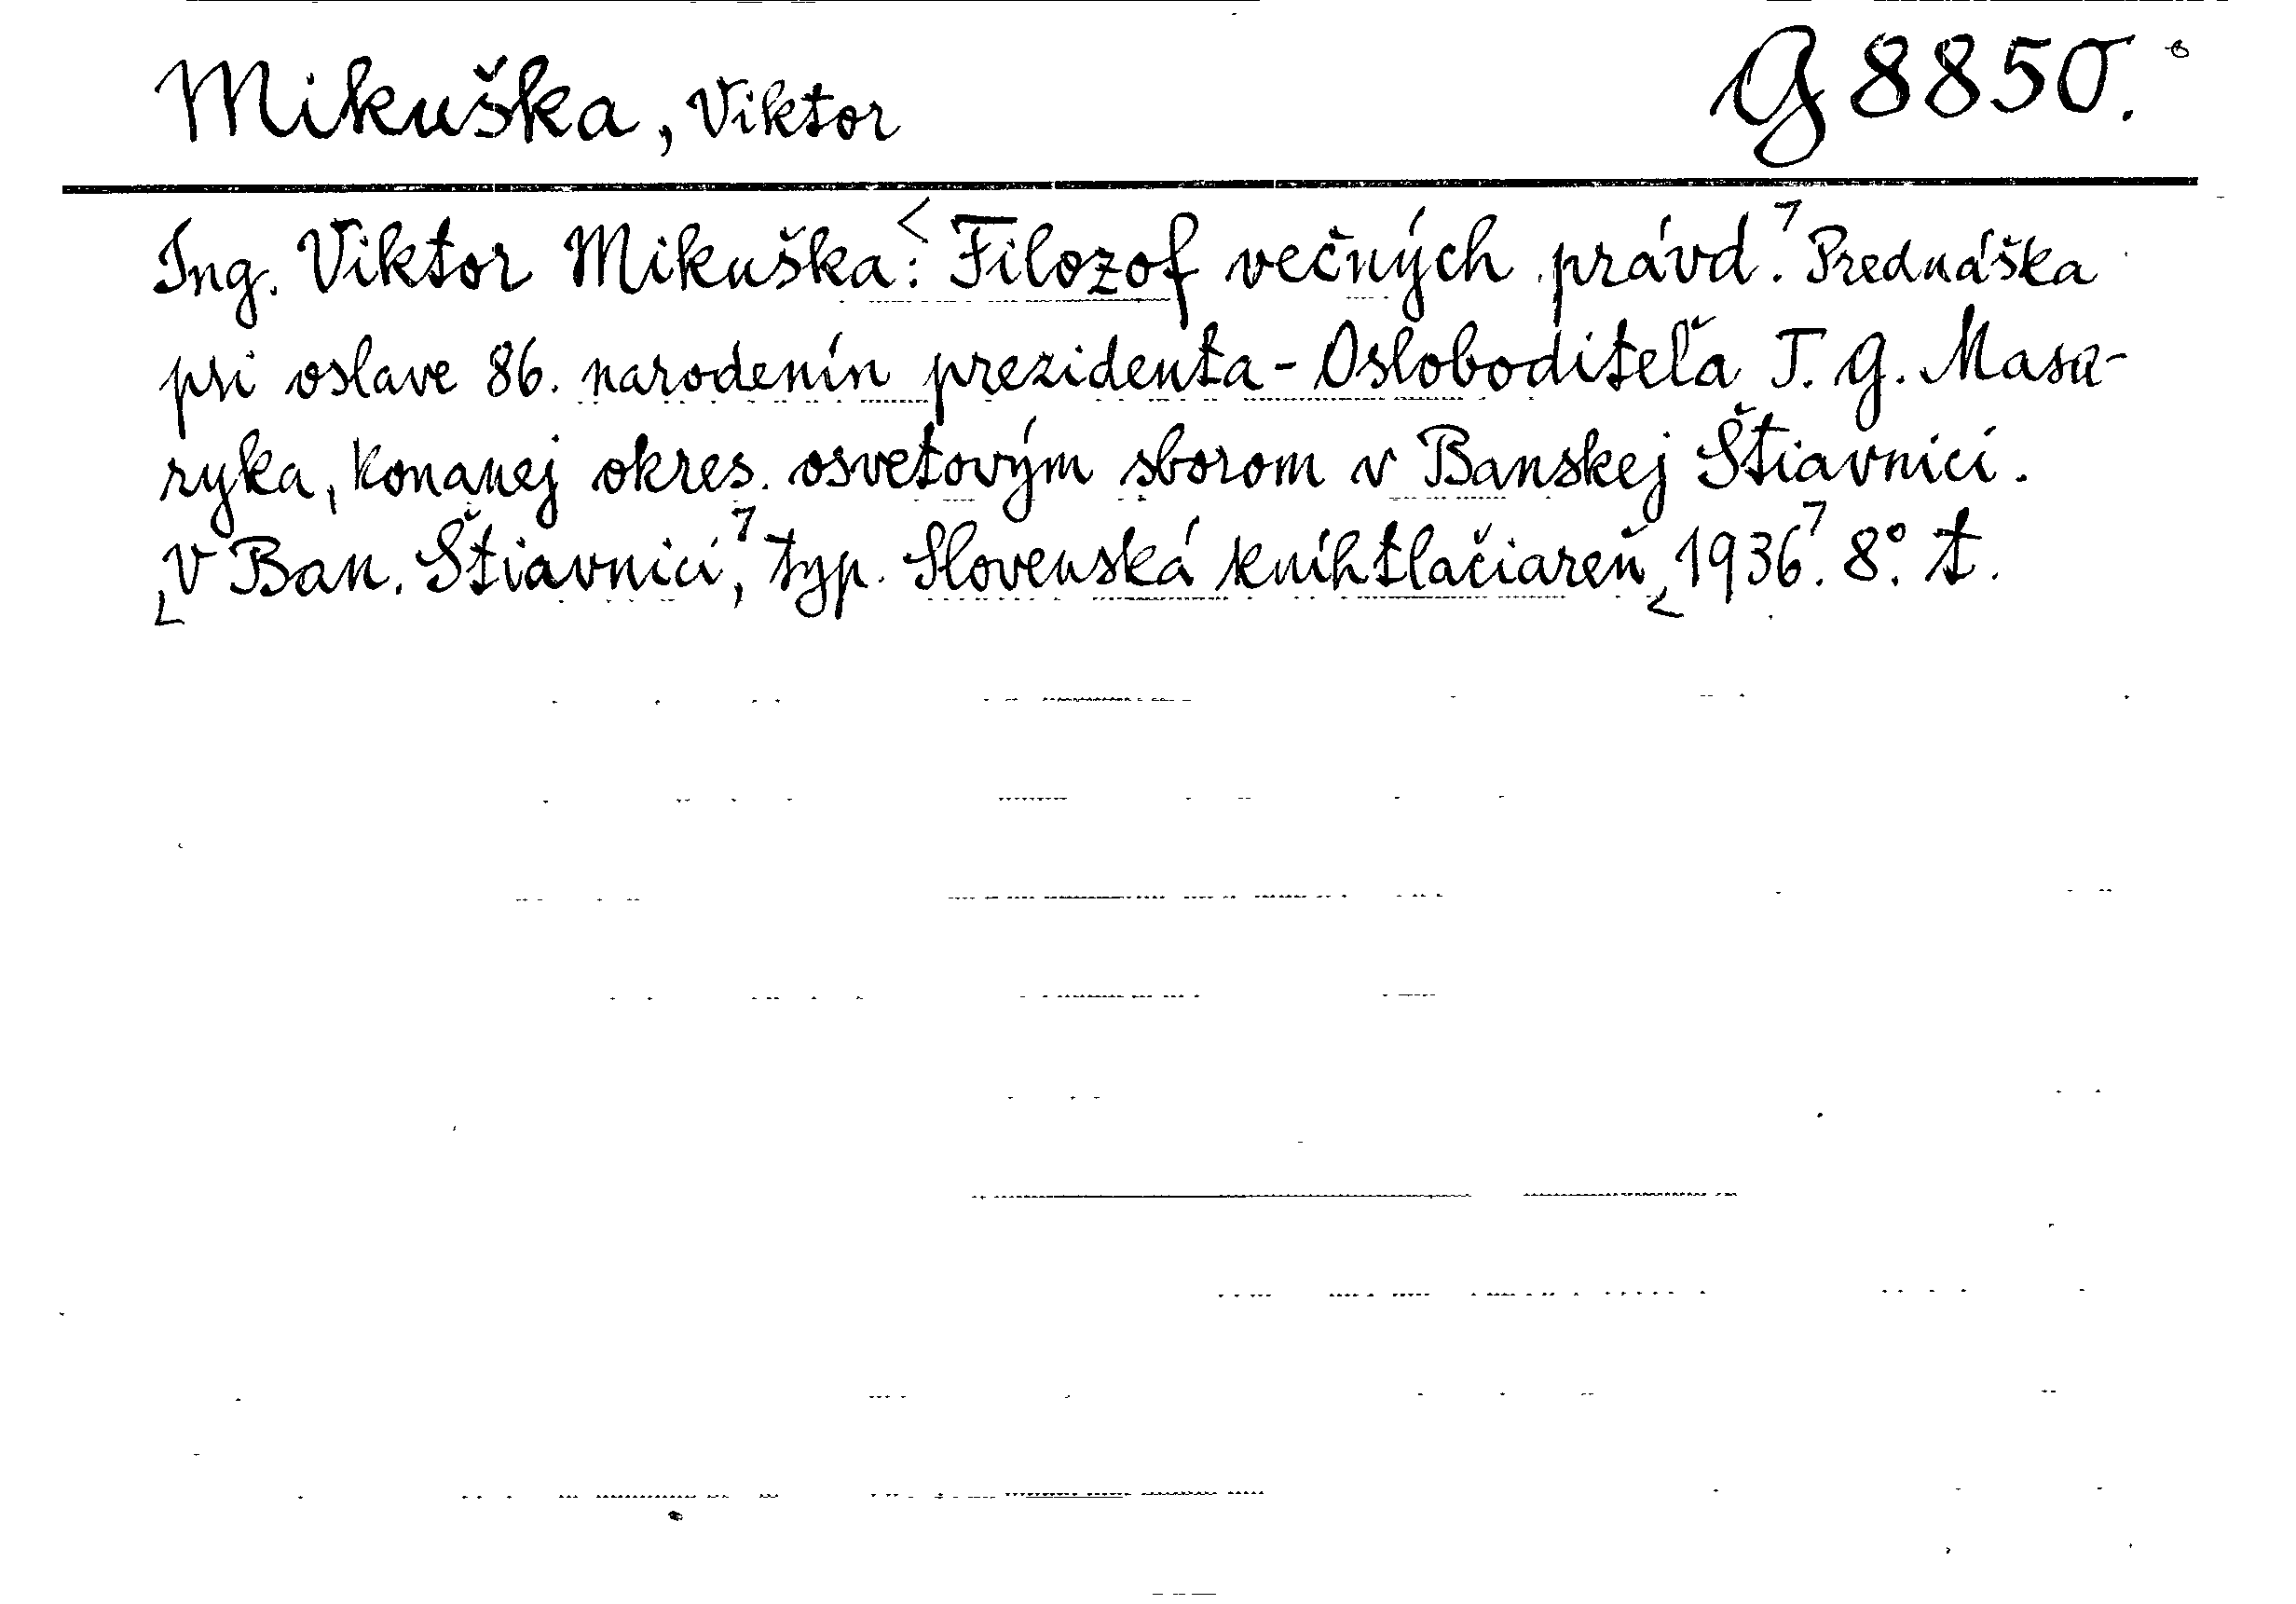 Mikuška, Viktor
G 8850.
Ing. Viktor Mikuška: Filozof večných právd. Prednáška
pri oslave 86. narodenín prezidenta-Osloboditeľa T. G. Masa-
ryka, konanej okres. osvetovým sborom v Banskej Štiavnici.
V Ban. Štiavnici, typ. Slovenská kníhtlačiareň 1936. 8°. t.